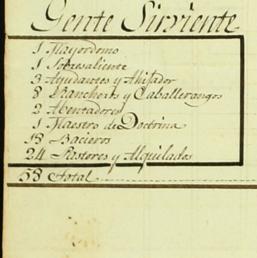 Gente Sirviente
1 Mayordomo
1 Sobresaliente
3 Ayudantes y Ahijador
8 Rancheros y Caballerangos
2 Aventadores
1 Maestro de Doctrina
13 Bacieros
24 Pastores y Alquilados
53 Total